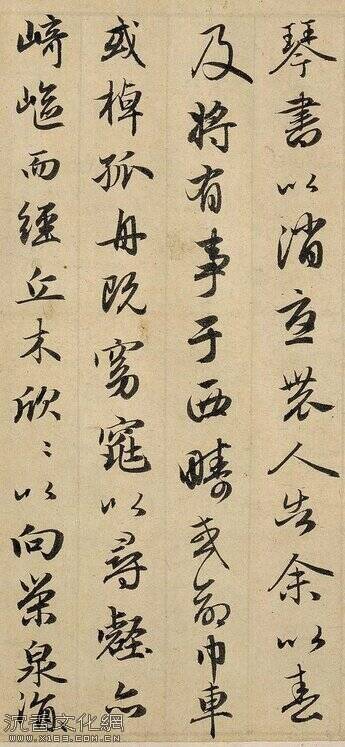 琴書以消憂農人告余以春
及將有事于西疇或命巾車
或棹孤舟既窈窕以尋壑亦
崎嶇而經丘木欣〻以向榮泉涓
文化網